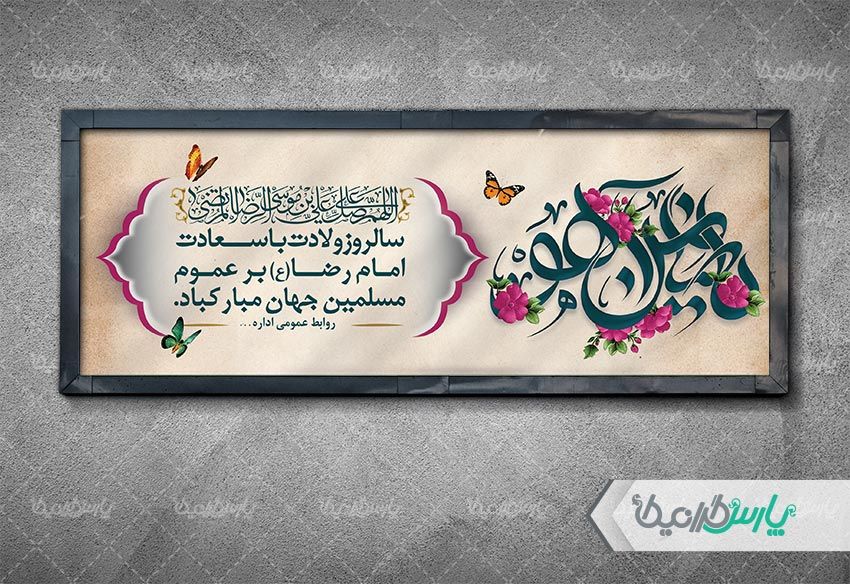 یا ضامن آهو
اللهم صل علی علی بن موسی الرضا المرتضی
سالروز ولادت با سعادت
امام رضا(ع) بر عموم
مسلمین جهان مبارکباد.
روابط عمومی اداره...
پارس گرافیک